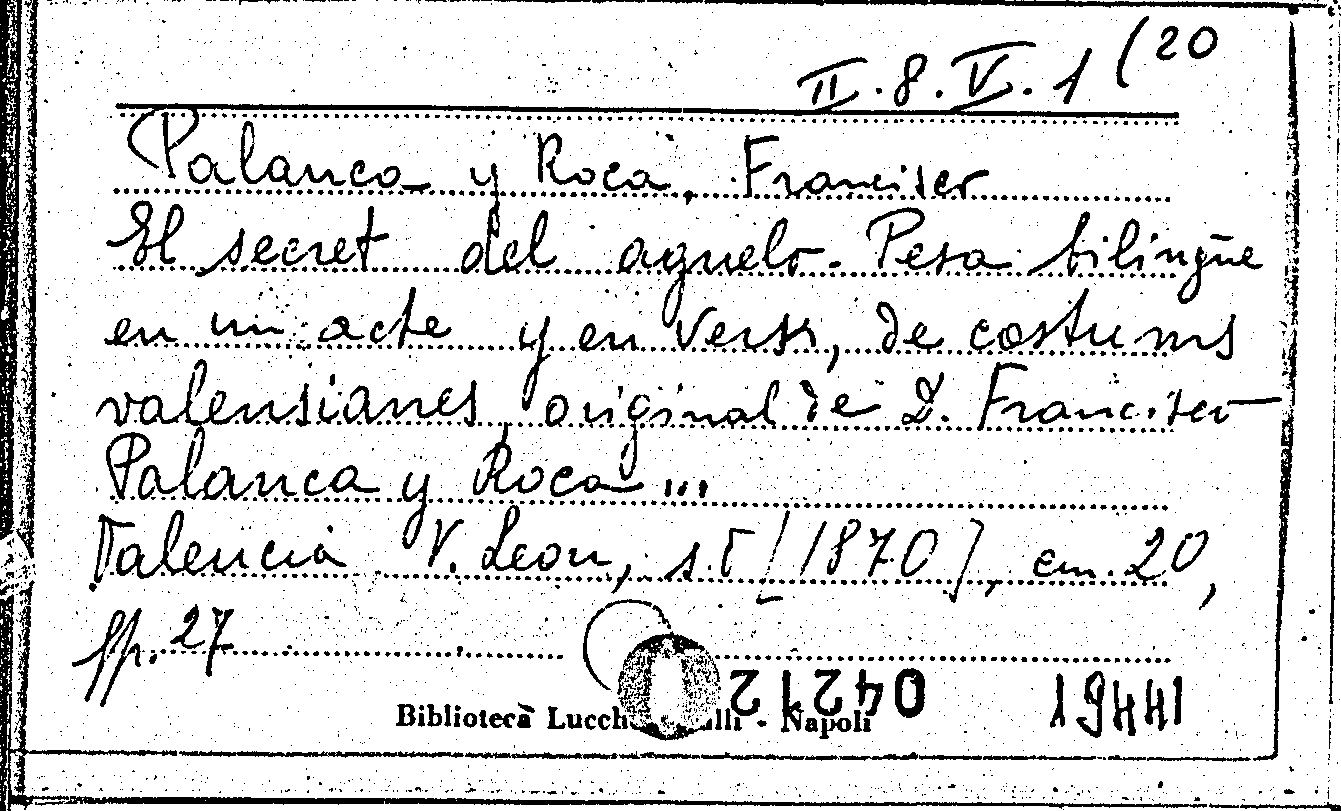 II.8.V.1 (20
Palanca y Roca, Francisco
El secret del aguelo. Pesa bilingüe
en un acte y en vers, de costums
valensianes, original de D. Francisco
Palanca y Roca...
Valencia V. Leon, s.t [1870], cm. 20,
pp. 27
04212 19441
Biblioteca Lucch lli - Napoli